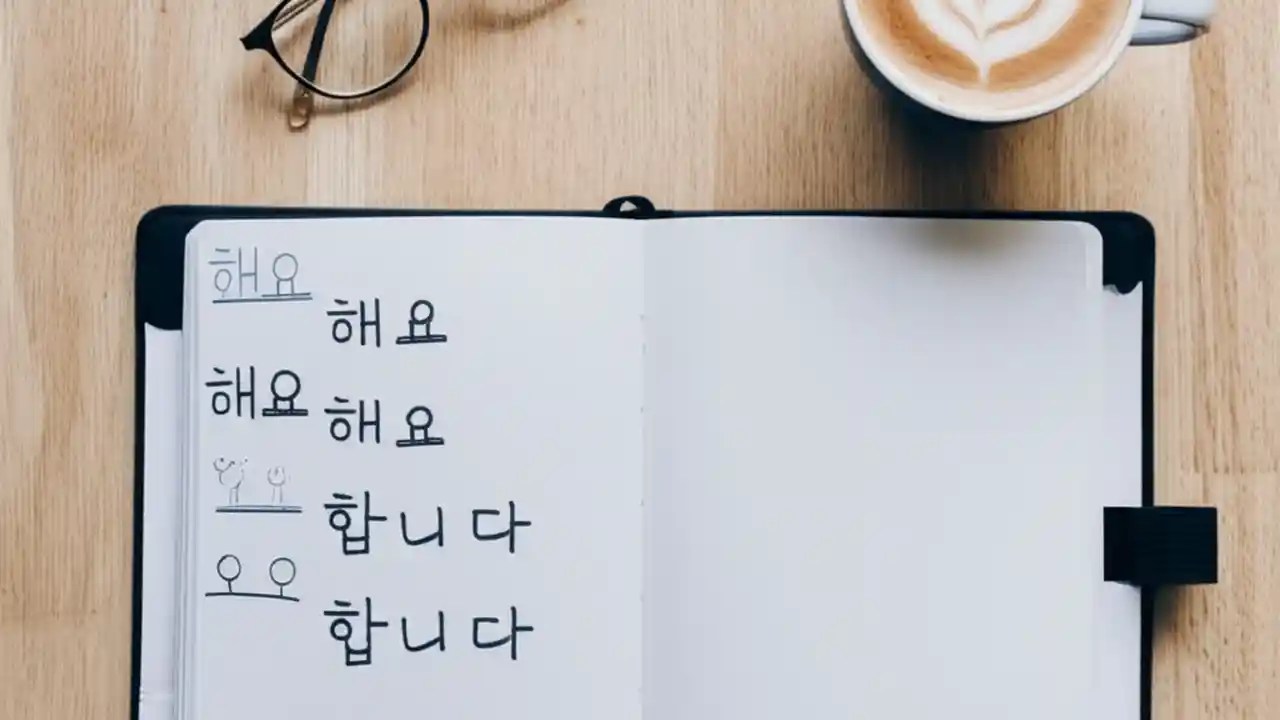 해요
해요
해요
해요
합니다
합니다